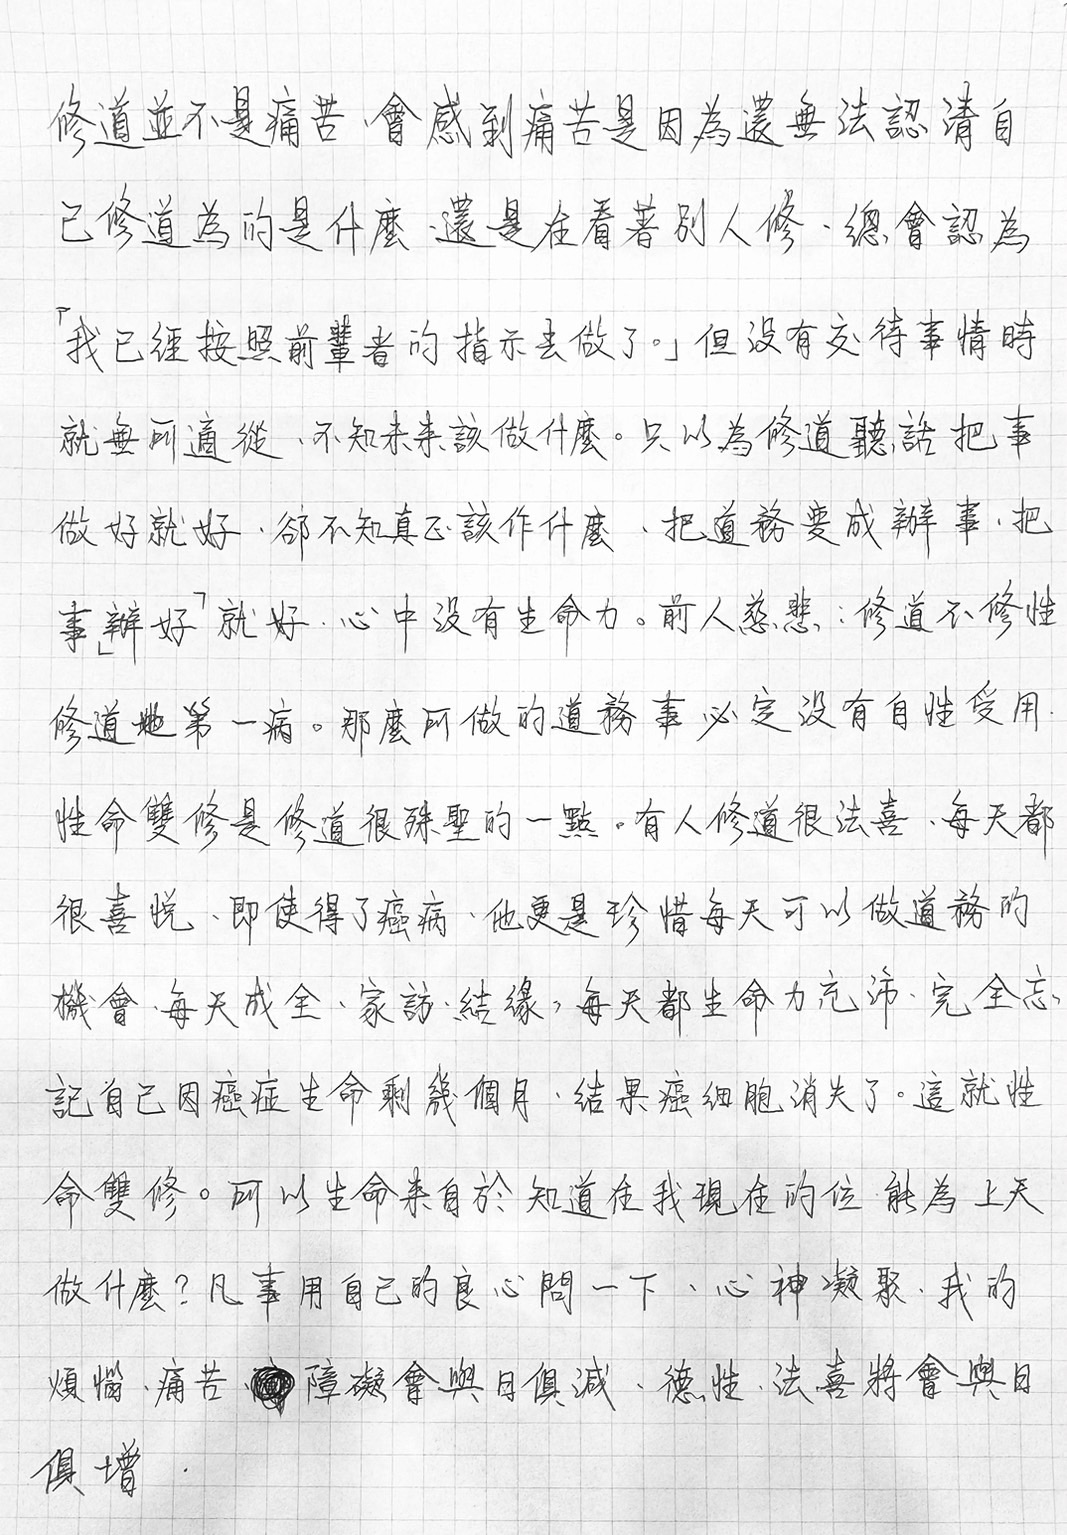 修道並不是痛苦、會感到痛苦是因為還無法認清自
己修道為的是什麼、還是在看著別人修、總會認為
「我已經按照前輩者的指示去做了。」但沒有交待事情時
就無所適從、不知未來該做什麼。只以為修道聽話把事
做好就好、卻不知真正該作什麼、把道務變成辦事、把
事「辦好」就好、心中沒有生命力。前人慈悲：修道不修性
修道他第一病。那麼所做的道務事必定沒有自性受用、
性命雙修是修道很殊聖的一點。有人修道很法喜、每天都
很喜悅、即使得了癌病、他更是珍惜每天可以做道務的
機會、每天成全、家訪、結緣，每天都生命力充沛、完全忘
記自己因癌症生命剩幾個月、結果癌細胞消失了。這就性
命雙修。所以生命來自於知道在我現在的位能為上天
做什麼？凡事用自己的良心問一下、心神凝聚、我的
煩惱、痛苦、障礙會與日俱減、德性、法喜將會與日
俱增.